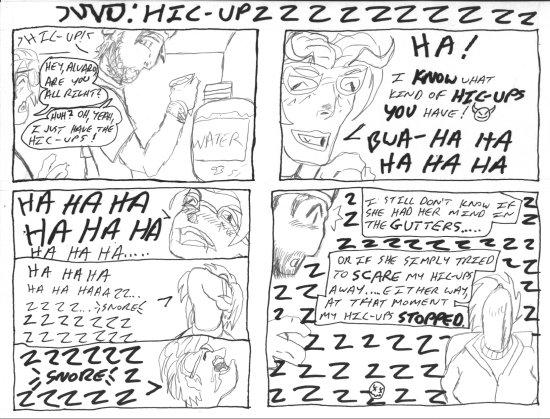 NVD: HIC-UPZZZZZZZZZZ
HIC-UP!
HEY, ALVARO
ARE YOU
ALL RIGHT?
HUH? OH, YEAH,
I JUST HAVE THE
HIC-UPS!
WATER
HA!
I KNOW WHAT
KIND OF HIC-UPS
YOU HAVE!
BUA-HA HA
HA HA HA
HA HA HA
HA HA HA
HA HA HA.....
HA HA HA
HA HA HAAZZ...
ZZZZ...SNORE!
ZZZZZZZ
ZZZZZZ
ZZZZZZ
SNORE! Z
ZZZZZZ
I STILL DON'T KNOW IF
SHE HAD HER MIND IN
THE GUTTERS.....
OR IF SHE SIMPLY TRIED
TO SCARE MY HIC-UPS
AWAY....EITHER WAY,
AT THAT MOMENT
MY HIC-UPS STOPPED.